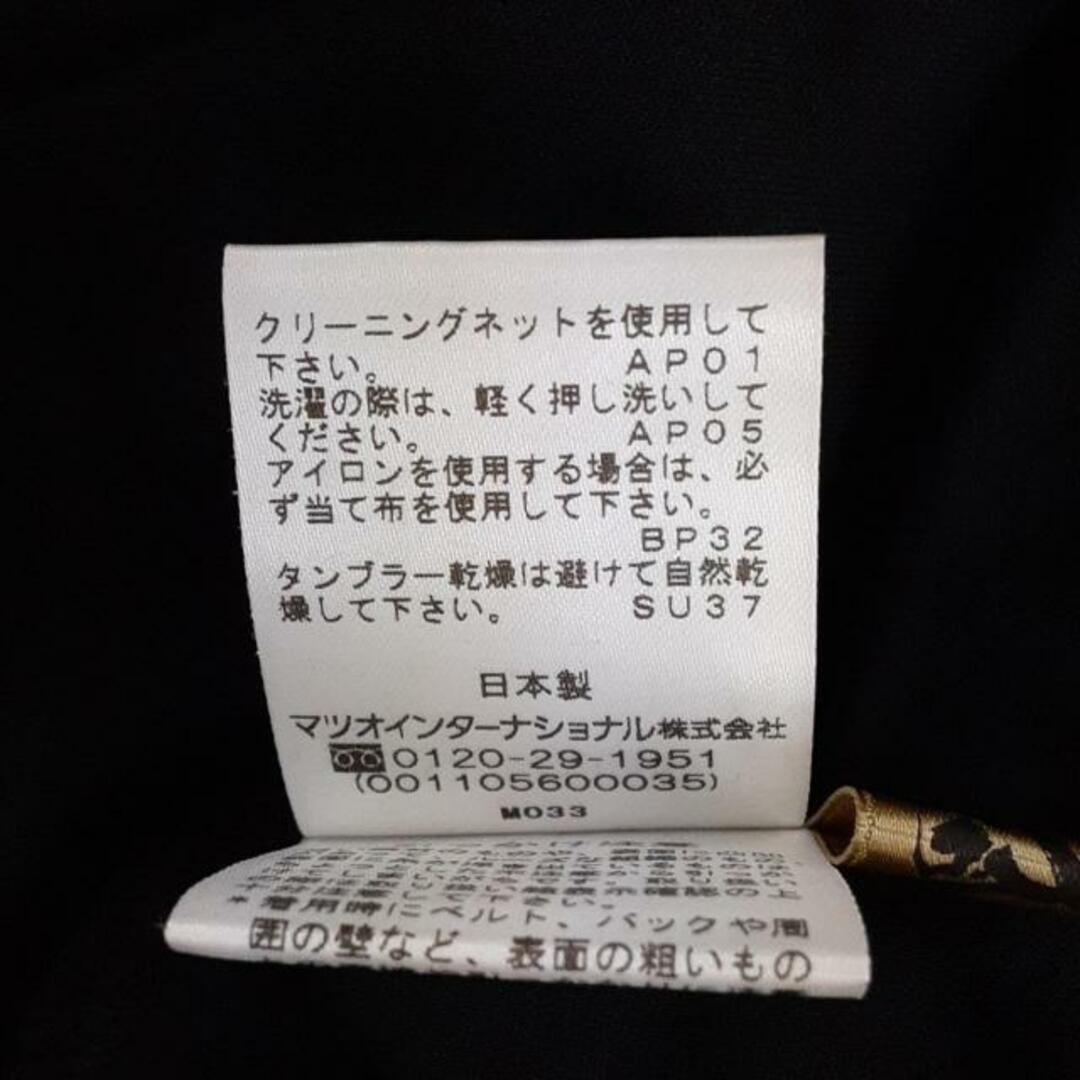 クリーニングネットを使用して
下さい。 AP01
洗濯の際は、軽く押し洗いして
ください。 AP05
アイロンを使用する場合は、必
ず当て布を使用して下さい。
BP32
タンブラー乾燥は避けて自然乾
燥して下さい。 SU37
日本製
マツオインターナショナル株式会社
0120-29-1951
(001105600035)
M033
*着用時にベルト、バックや周
囲の壁など、表面の粗いもの